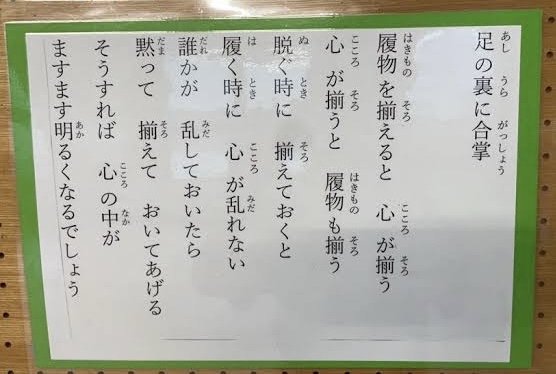 足の裏に合掌
履物を揃えると　心が揃う
心が揃うと　履物も揃う
脱ぐ時に　揃えておくと
履く時に　心が乱れない
誰かが　乱しておいたら
黙って　揃えて　おいてあげる
そうすれば　心の中が
ますます明るくなるでしょう